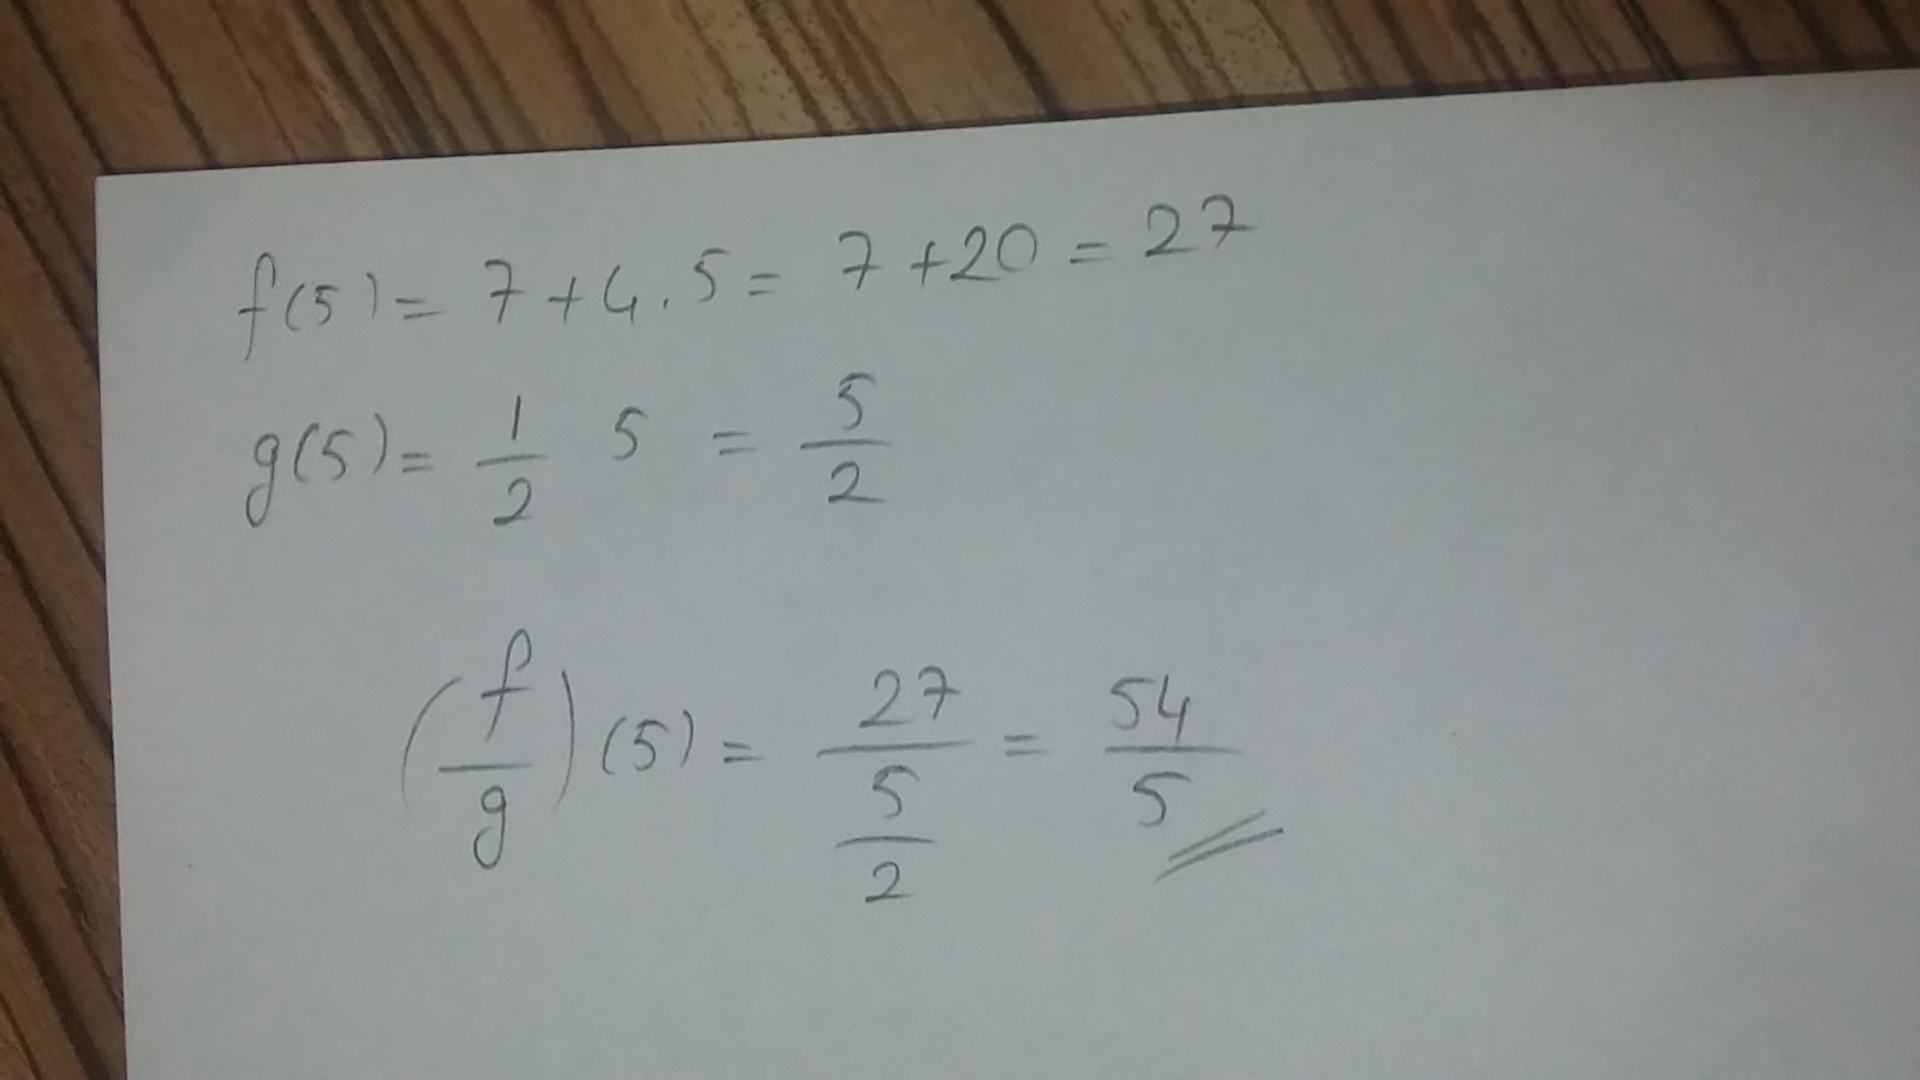 f(5) = 7 + 4 . 5 = 7 + 20 = 27
g(5) = 1/2 . 5 = 5/2
(f/g)(5) = 27/(5/2) = 54/5